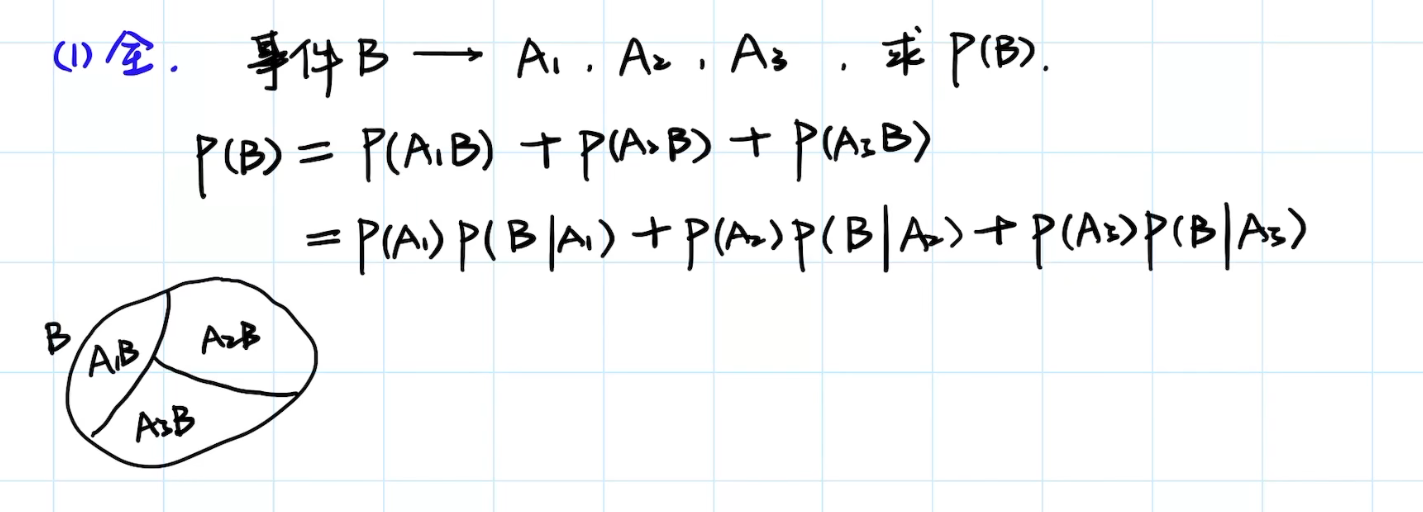 (1) 全. 事件B → A₁, A₂, A₃, 求 P(B).
P(B) = P(A₁B) + P(A₂B) + P(A₃B)
= P(A₁)P(B|A₁) + P(A₂)P(B|A₂) + P(A₃)P(B|A₃)
B A₁B A₂B
A₃B